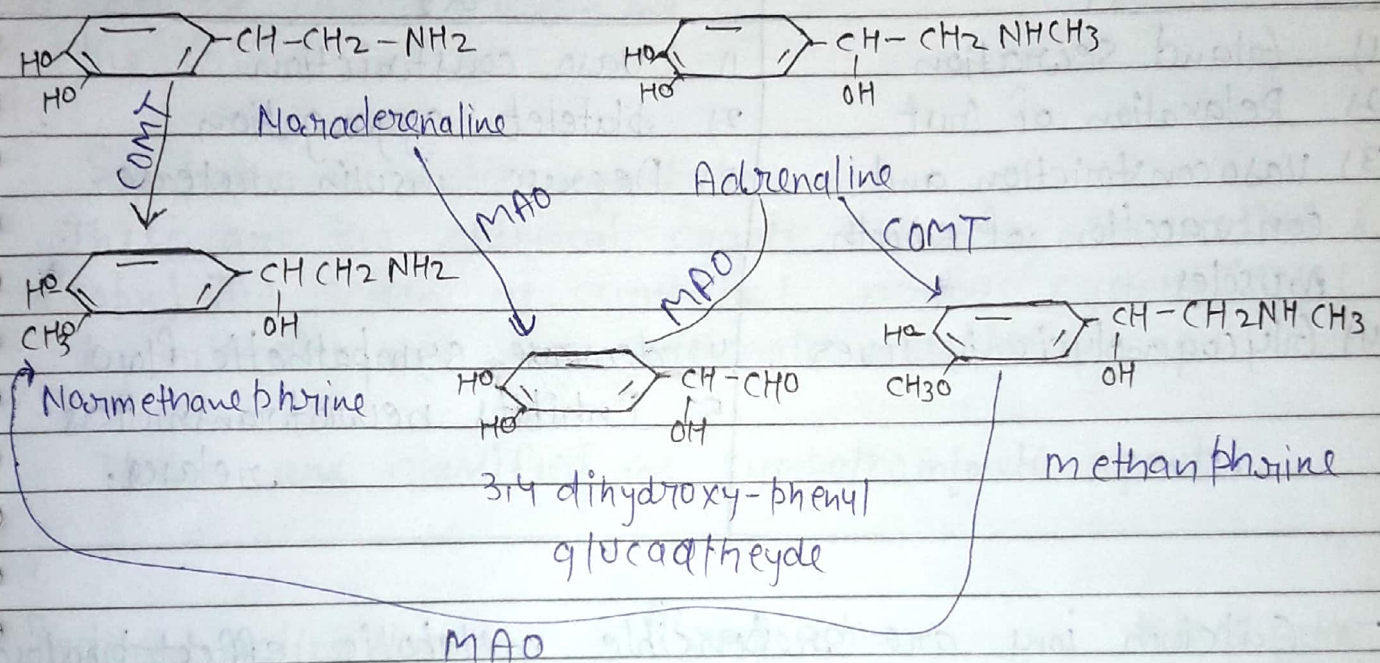 HO HO -CH-CH2-NH2
HO HO -CH-CH2 NHCH3
OH
COMT
Noraderenaline
MAO
Adrenaline
MAO
COMT
HO CH3O -CH CH2 NH2
OH
Normethanephrine
HO HO -CH-CHO
OH
3,4 dihydroxy-phenyl
glucaatheyde
HO CH3O -CH-CH2NH CH3
OH
methanphrine
MAO